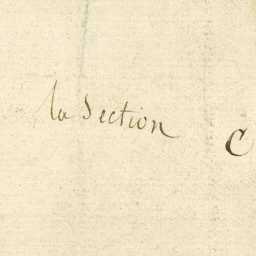 la Section C